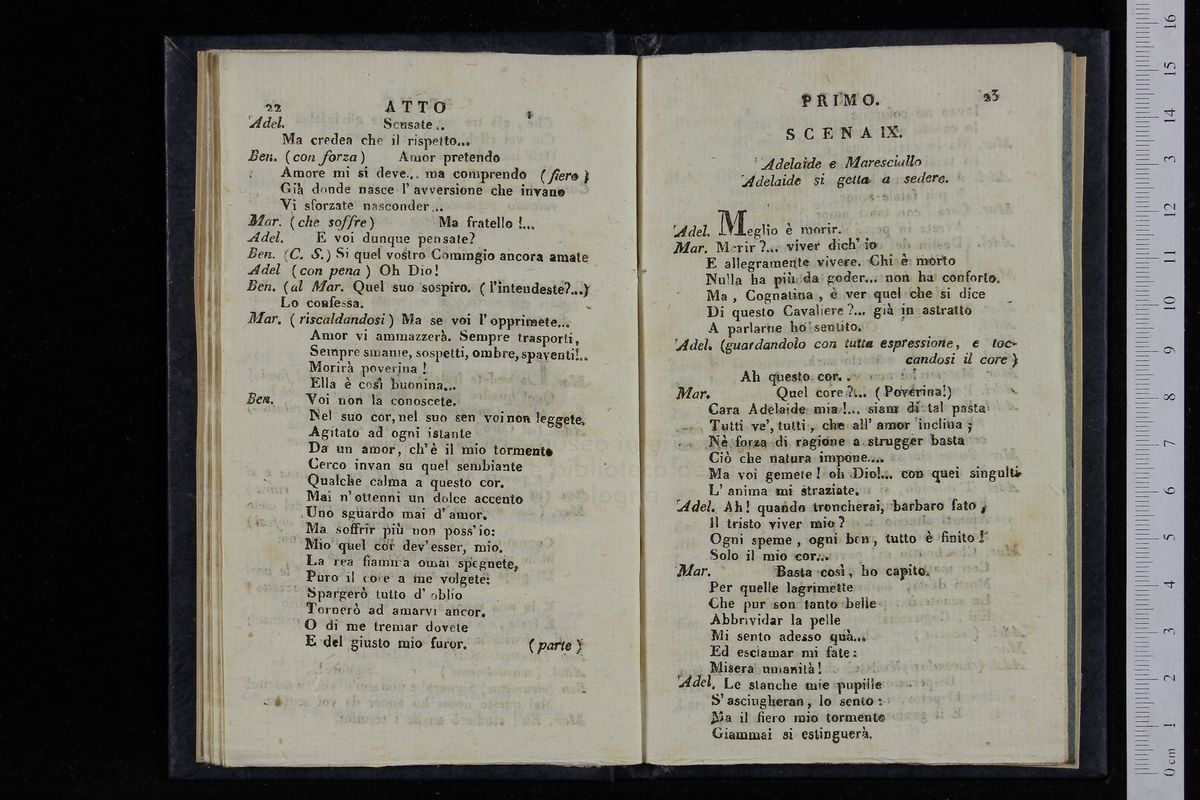 22 ATTO
Adel. Scusate..
Ma credea che il rispetto...
Ben. (con forza) Amor pretendo
Amore mi si deve... ma comprendo (fiero)
Già donde nasce l'avversione che invano
Vi sforzate nasconder...
Mar. (che soffre) Ma fratello!...
Adel. E voi dunque pensate?
Ben. (C. S.) Si quel vostro Comingio ancora amate
Adel (con pena) Oh Dio!
Ben. (al Mar. Quel suo sospiro. (l'intendeste?...)
Lo confessa.
Mar. (riscaldandosi) Ma se voi l'opprimete...
Amor vi ammazzerà. Sempre trasporti,
Sempre smanie, sospetti, ombre, spaventi!..
Morirà poverina!
Ella è così buonina...
Ben. Voi non la conoscete.
Nel suo cor, nel suo sen voi non leggete.
Agitato ad ogni istante
Da un amor, ch'è il mio tormento
Cerco invan su quel sembiante
Qualche calma a questo cor.
Mai n'ottenni un dolce accento
Uno sguardo mai d'amor.
Ma soffrir più non poss'io:
Mio quel cor dev'esser, mio.
La rea fiamma omai spegnete,
Puro il core a me volgete:
Spargerò tutto d'oblio
Tornerò ad amarvi ancor.
O di me tremar dovete
E del giusto mio furor. (parte)
PRIMO. 23
SCENA IX.
Adelaide e Maresciallo
Adelaide si getta a sedere.
Adel. Meglio è morir.
Mar. Morir?... viver dich'io
E allegramente vivere. Chi è morto
Nulla ha più da goder... non ha conforto.
Ma, Cognatina, è ver quel che si dice
Di questo Cavaliere?... già in astratto
A parlarne ho sentito.
Adel. (guardandolo con tutta espressione, e toc-
candosi il core)
Ah questo cor..
Mar. Quel core?... (Poverina!)
Cara Adelaide mia!... siam di tal pasta
Tutti ve', tutti, che all'amor inclina;
Nè forza di ragione a strugger basta
Ciò che natura impone....
Ma voi gemete! oh Dio!... con quei singulti
L'anima mi straziate.
Adel. Ah! quando troncherai, barbaro fato,
Il tristo viver mio?
Ogni speme, ogni ben, tutto è finito!
Solo il mio cor...
Mar. Basta così, ho capito.
Per quelle lagrimette
Che pur son tanto belle
Abbrividar la pelle
Mi sento adesso quà...
Ed esclamar mi fate:
Misera umanità!
Adel. Le stanche mie pupille
S'asciugheran, lo sento:
Ma il fiero mio tormento
Giammai si estinguerà.
0 cm 1 2 3 4 5 6 7 8 9 10 11 12 13 14 15 16